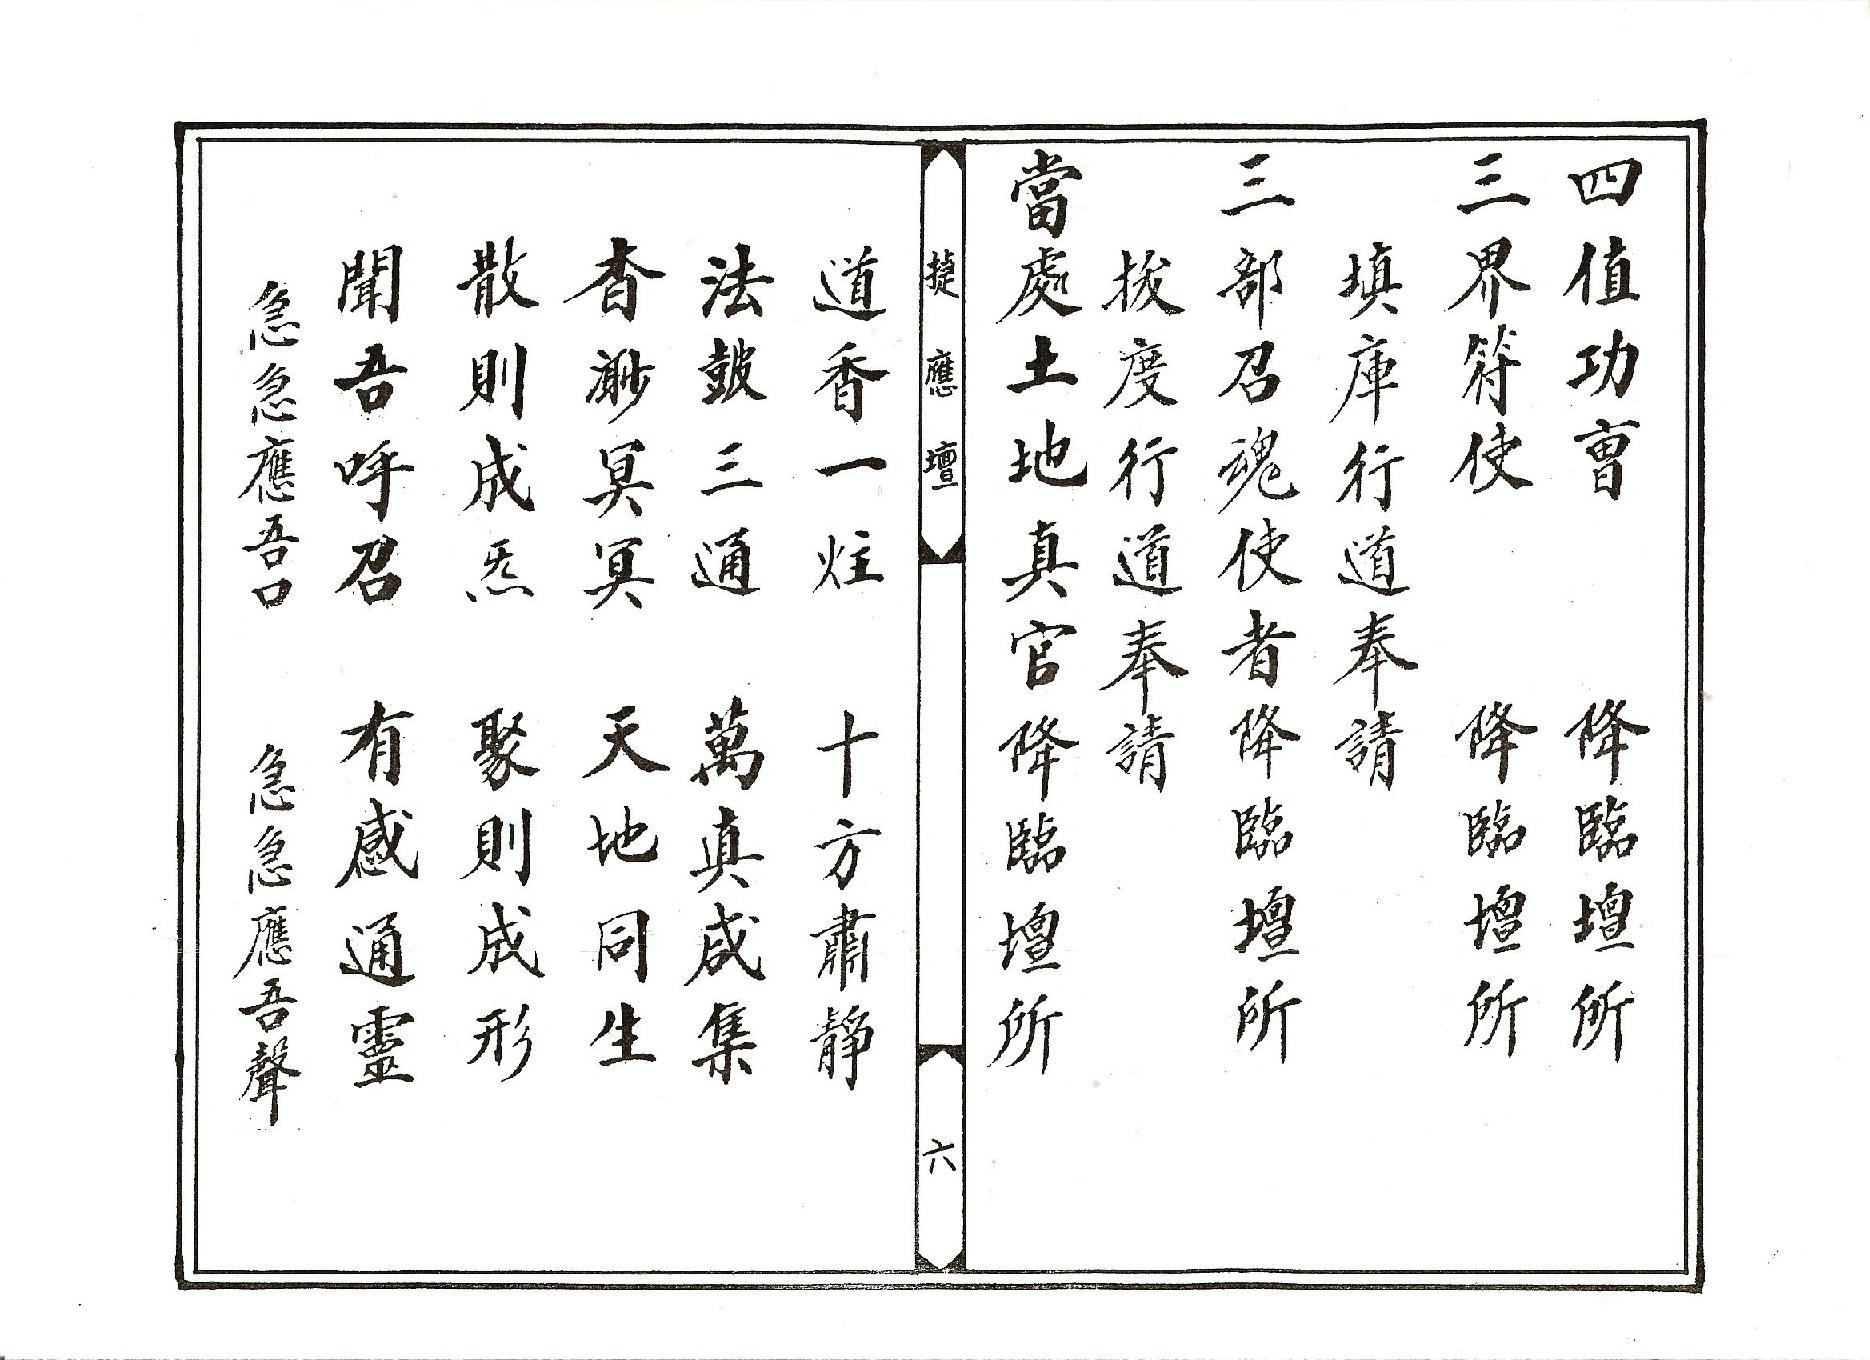 四值功曺　降臨壇所
三界符使　降臨壇所
填庫行道奉請
三部召魂使者降臨壇所
拔度行道奉請
當處土地真官降臨壇所
捷應壇
六
道香一炷　十方肅靜
法鼓三通　萬真咸集
杳渺冥冥　天地同生
散則成炁　聚則成形
聞吾呼召　有感通靈
急急應吾口　急急應吾聲